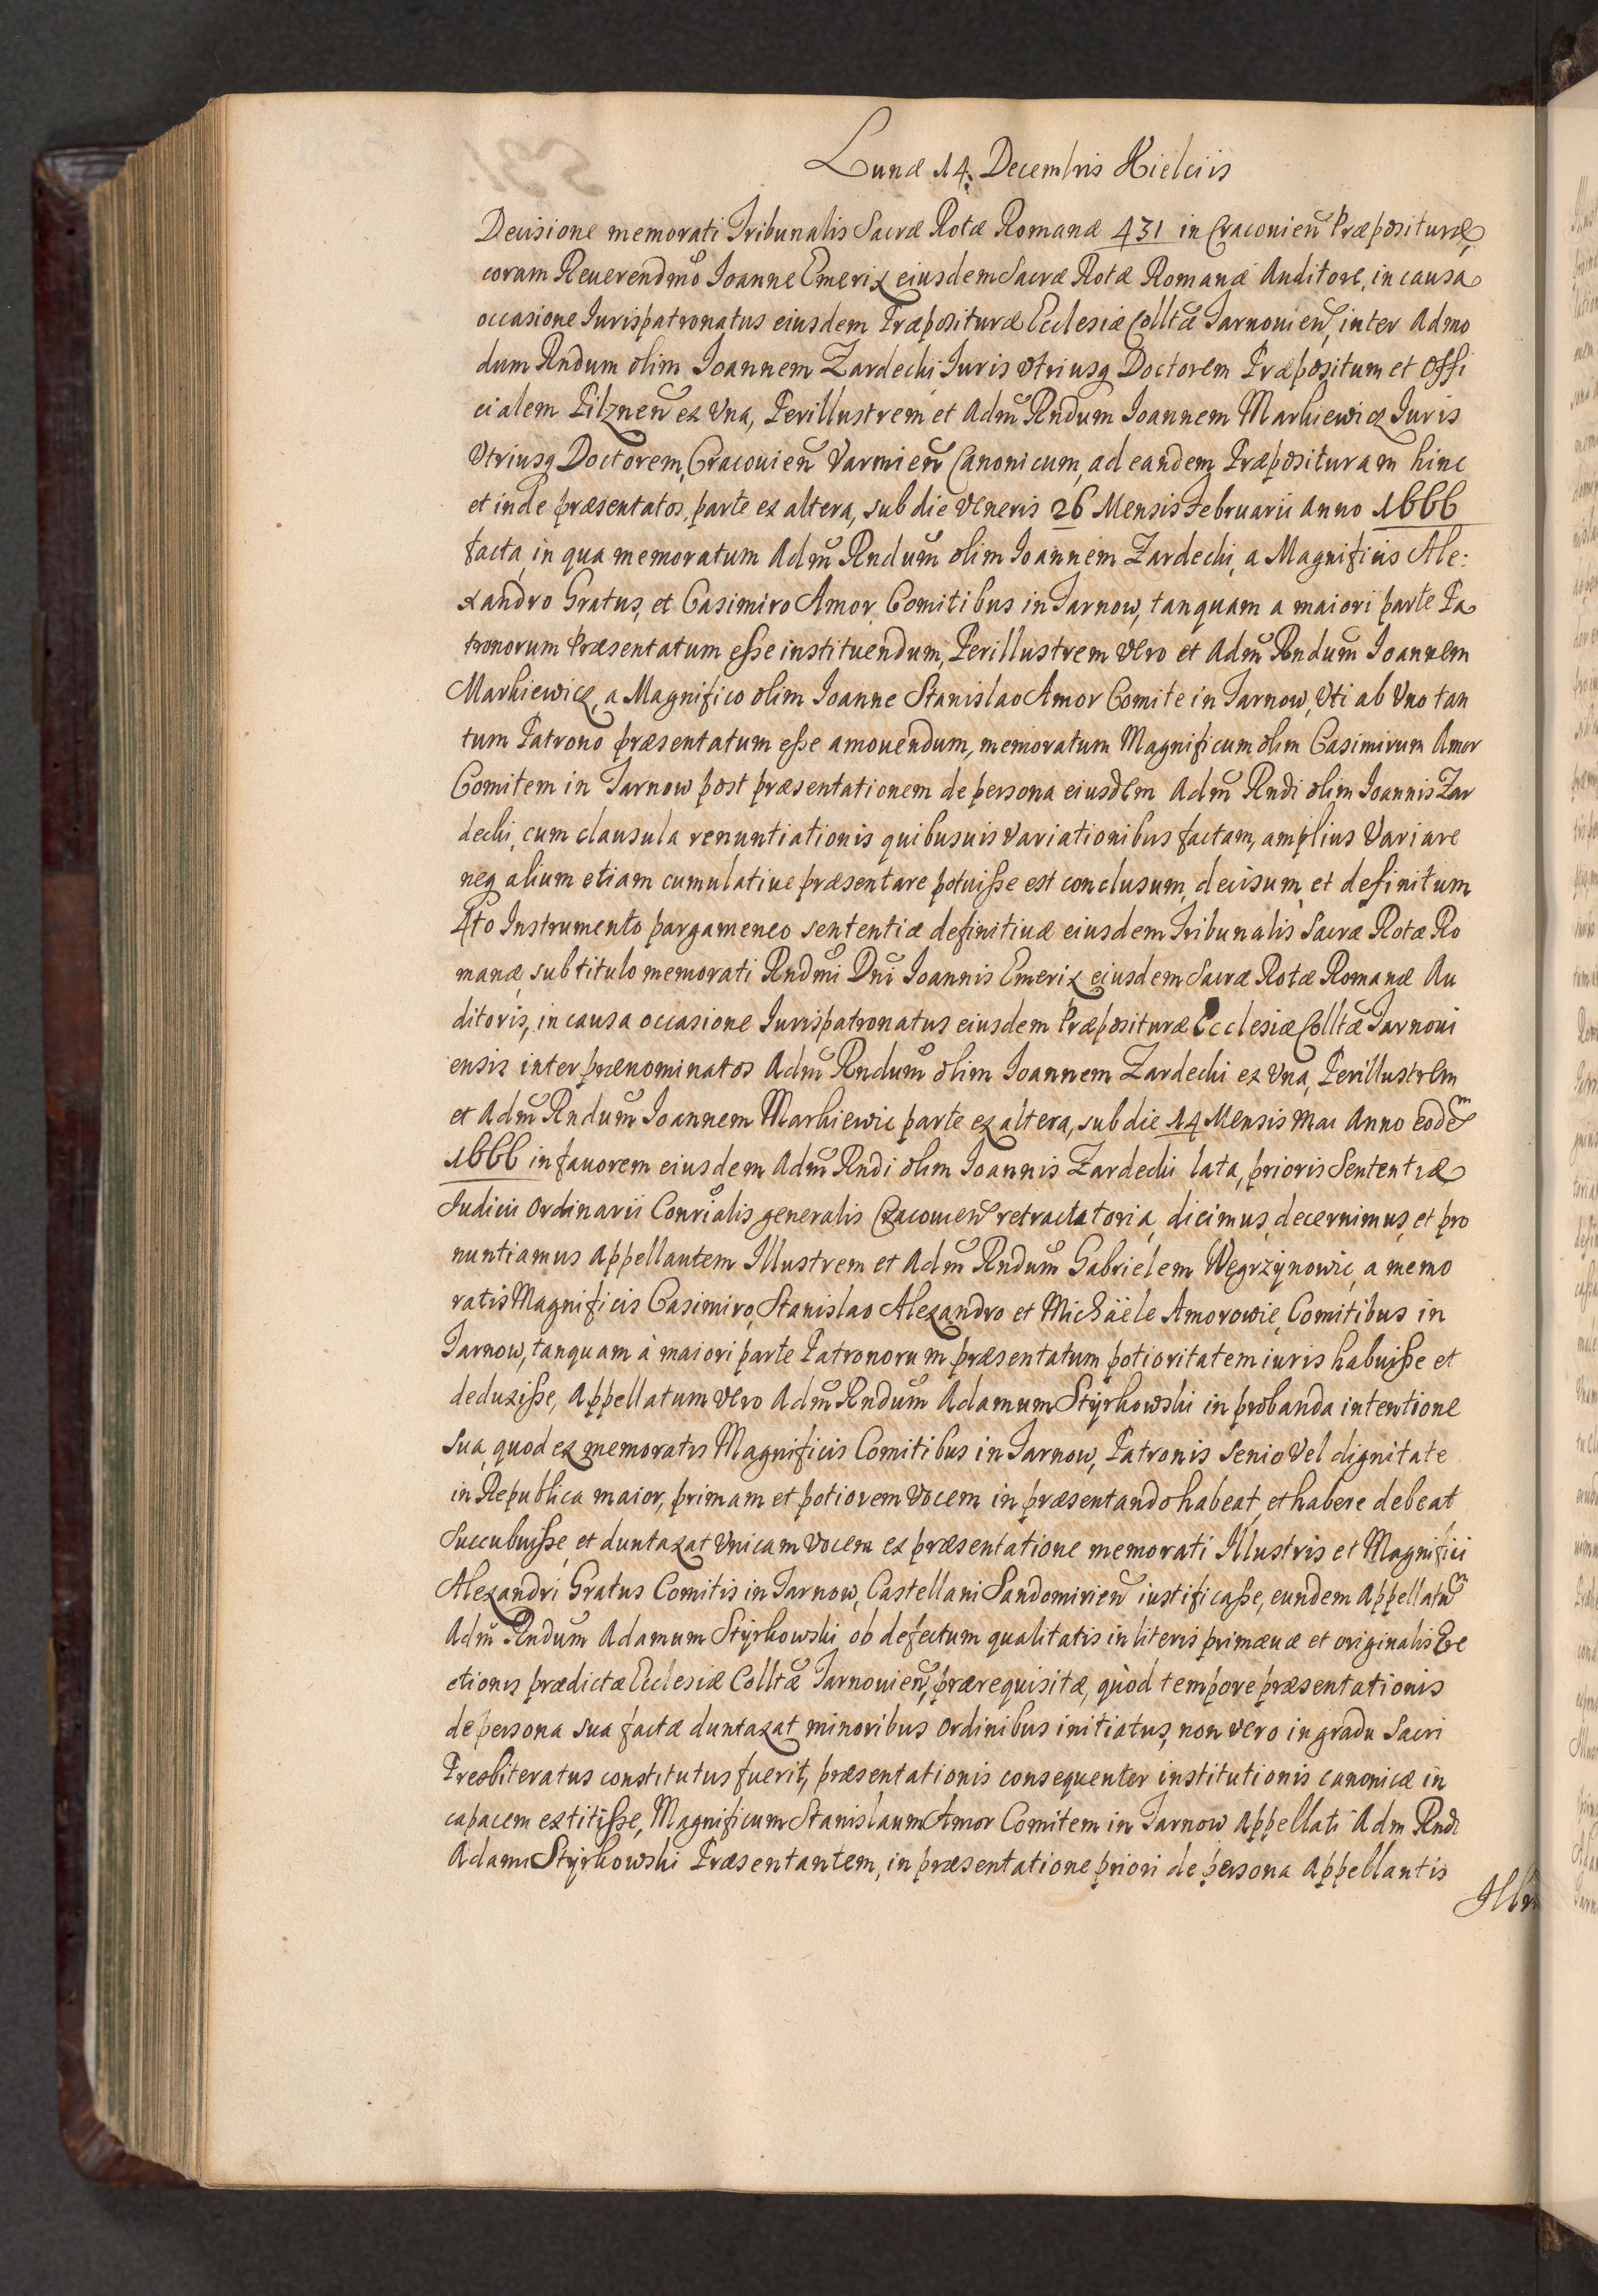 Lunæ 14. Decembris Kielciis
Decisione memorati Tribunalis Sacræ Rotæ Romanæ 431 in Cracouien̄ Præpositurę,
coram Reuerendm̄o Ioanne Emerix eiusdem Sacræ Rotæ Romanæ Auditore, in causa
occasione Iurispatronatus eiusdem Præpositurę Ecclesiæ Colltæ Tarnouien̄, inter Admo
dum Rndum olim Ioannem Zardecki Iuris Vtriusq Doctorem Præpositum et Offi
cialem Pilznen̄ ex Vna, Perillustrem et Adm̄ Rndum Ioannem Markiewicz Iuris
Vtriusq Doctorem, Cracouien̄ Varmien̄ Canonicum, ad eandem Præposituram hinc
et inde præsentatos, parte ex altera, sub die Veneris 26 Mensis Februarii Anno 1666
facta, in qua memoratum Adm̄ Rndum̄ olim Ioannem Zardecki, a Magnificis Ale:
xandro Gratus, et Casimiro Amor, Comitibus in Tarnow, tanquam a maiori parte Pa
tronorum Præsentatum esse instituendum, Perillustrem Vero et Adm̄ Rndum̄ Ioannem
Markiewicz, a Magnifico olim Ioanne Stanislao Amor Comite in Tarnow, Vti ab Vno tan
tum Patrono præsentatum esse amouendum, memoratum Magnificum olim Casimirum Amor
Comitem in Tarnow post præsentationem de persona eiusdem Adm̄ Rndi olim Ioannis Zar
decki, cum clausula renuntiationis quibusuis Variationibus factam, amplius Variare
neq alium etiam cumulatiue præsentare potuisse est conclusum, decisum, et definitum
4to Instrumento pargameneo sententiæ definitiuæ eiusdem Tribunalis Sacræ Rotæ Ro
manæ, sub titulo memorati Rndm̄i Dn̄i Ioannis Emerix eiusdem Sacræ Rotæ Romanæ Au
ditoris, in causa occasione Iurispatronatus eiusdem Præposituræ Ecclesiæ Colltæ Tarnoui
ensis inter prænominatos Adm̄ Rndum̄ olim Ioannem Zardecki ex Vna, Perillustrem
et Adm̄ Rndum̄ Ioannem Markiewic parte ex altera, sub die 14 Mensis Mai Anno eodem
1666 in fauorem eiusdem Adm̄ Rndi olim Ioannis Zardecki lata, prioris Sententiæ
Iudicii Ordinarii Conrīalis generalis Cracouien̄ retractatoria, dicimus, decernimus, et pro
nuntiamus Appellantem Illustrem et Adm̄ Rndum̄ Gabrielem Węgrzynowic, a memo
ratis Magnificis Casimiro, Stanislao Alexandro et Michäele Amorowie, Comitibus in
Tarnow, tanquam à maiori parte Patronorum præsentatum potioritatem iuris habuisse et
deduxisse, Appellatum Vero Adm̄ Rndum̄ Adamum Styrkowski in probanda intentione
sua, quod ex memoratis Magnificis Comitibus in Tarnow, Patronis senio Vel dignitate
in Republica maior, primam et potiorem Vocem in præsentando habeat, et habere debeat
Succubuisse, et duntaxat Vnicam Vocem ex præsentatione memorati Illustris et Magnifici
Alexandri Gratus Comitis in Tarnow, Castellani Sandomirien̄ iustificasse, eundem Appellatum
Adm̄ Rndum Adamum Styrkowski ob defectum qualitatis in literis primæuæ et originalis Ere
ctionis prædictæ Ecclesiæ Colltæ Tarnouien̄, prærequisitæ, quòd tempore præsentationis
de persona sua factæ duntaxat minoribus Ordinibus initiatus, non vero in gradu Sacri
Presbiteratus constitutus fuerit, præsentationis consequenter institutionis canonicæ in
capacem extitisse, Magnificum Stanislaum Amor Comitem in Tarnow Appellati Adm Rndi
Adami Styrkowski Præsentantem, in præsentatione priori de persona Appellantis